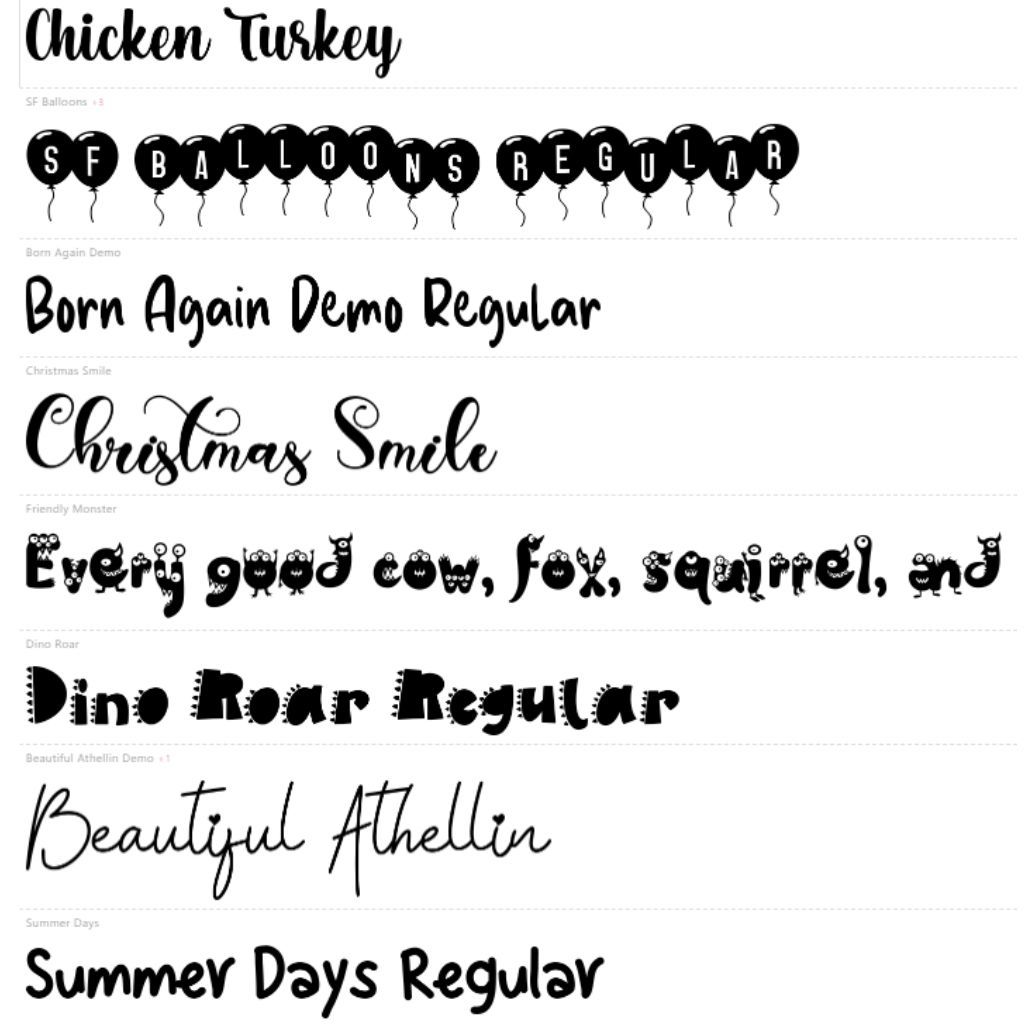 Chicken Turkey
SF Balloons +3
SF BALLOONS REGULAR
Born Again Demo
Born Again Demo Regular
Christmas Smile
Christmas Smile
Friendly Monster
Every good cow, fox, squirrel, and
Dino Roar
Dino Roar Regular
Beautiful Athellin Demo +1
Beautiful Athellin
Summer Days
Summer Days Regular